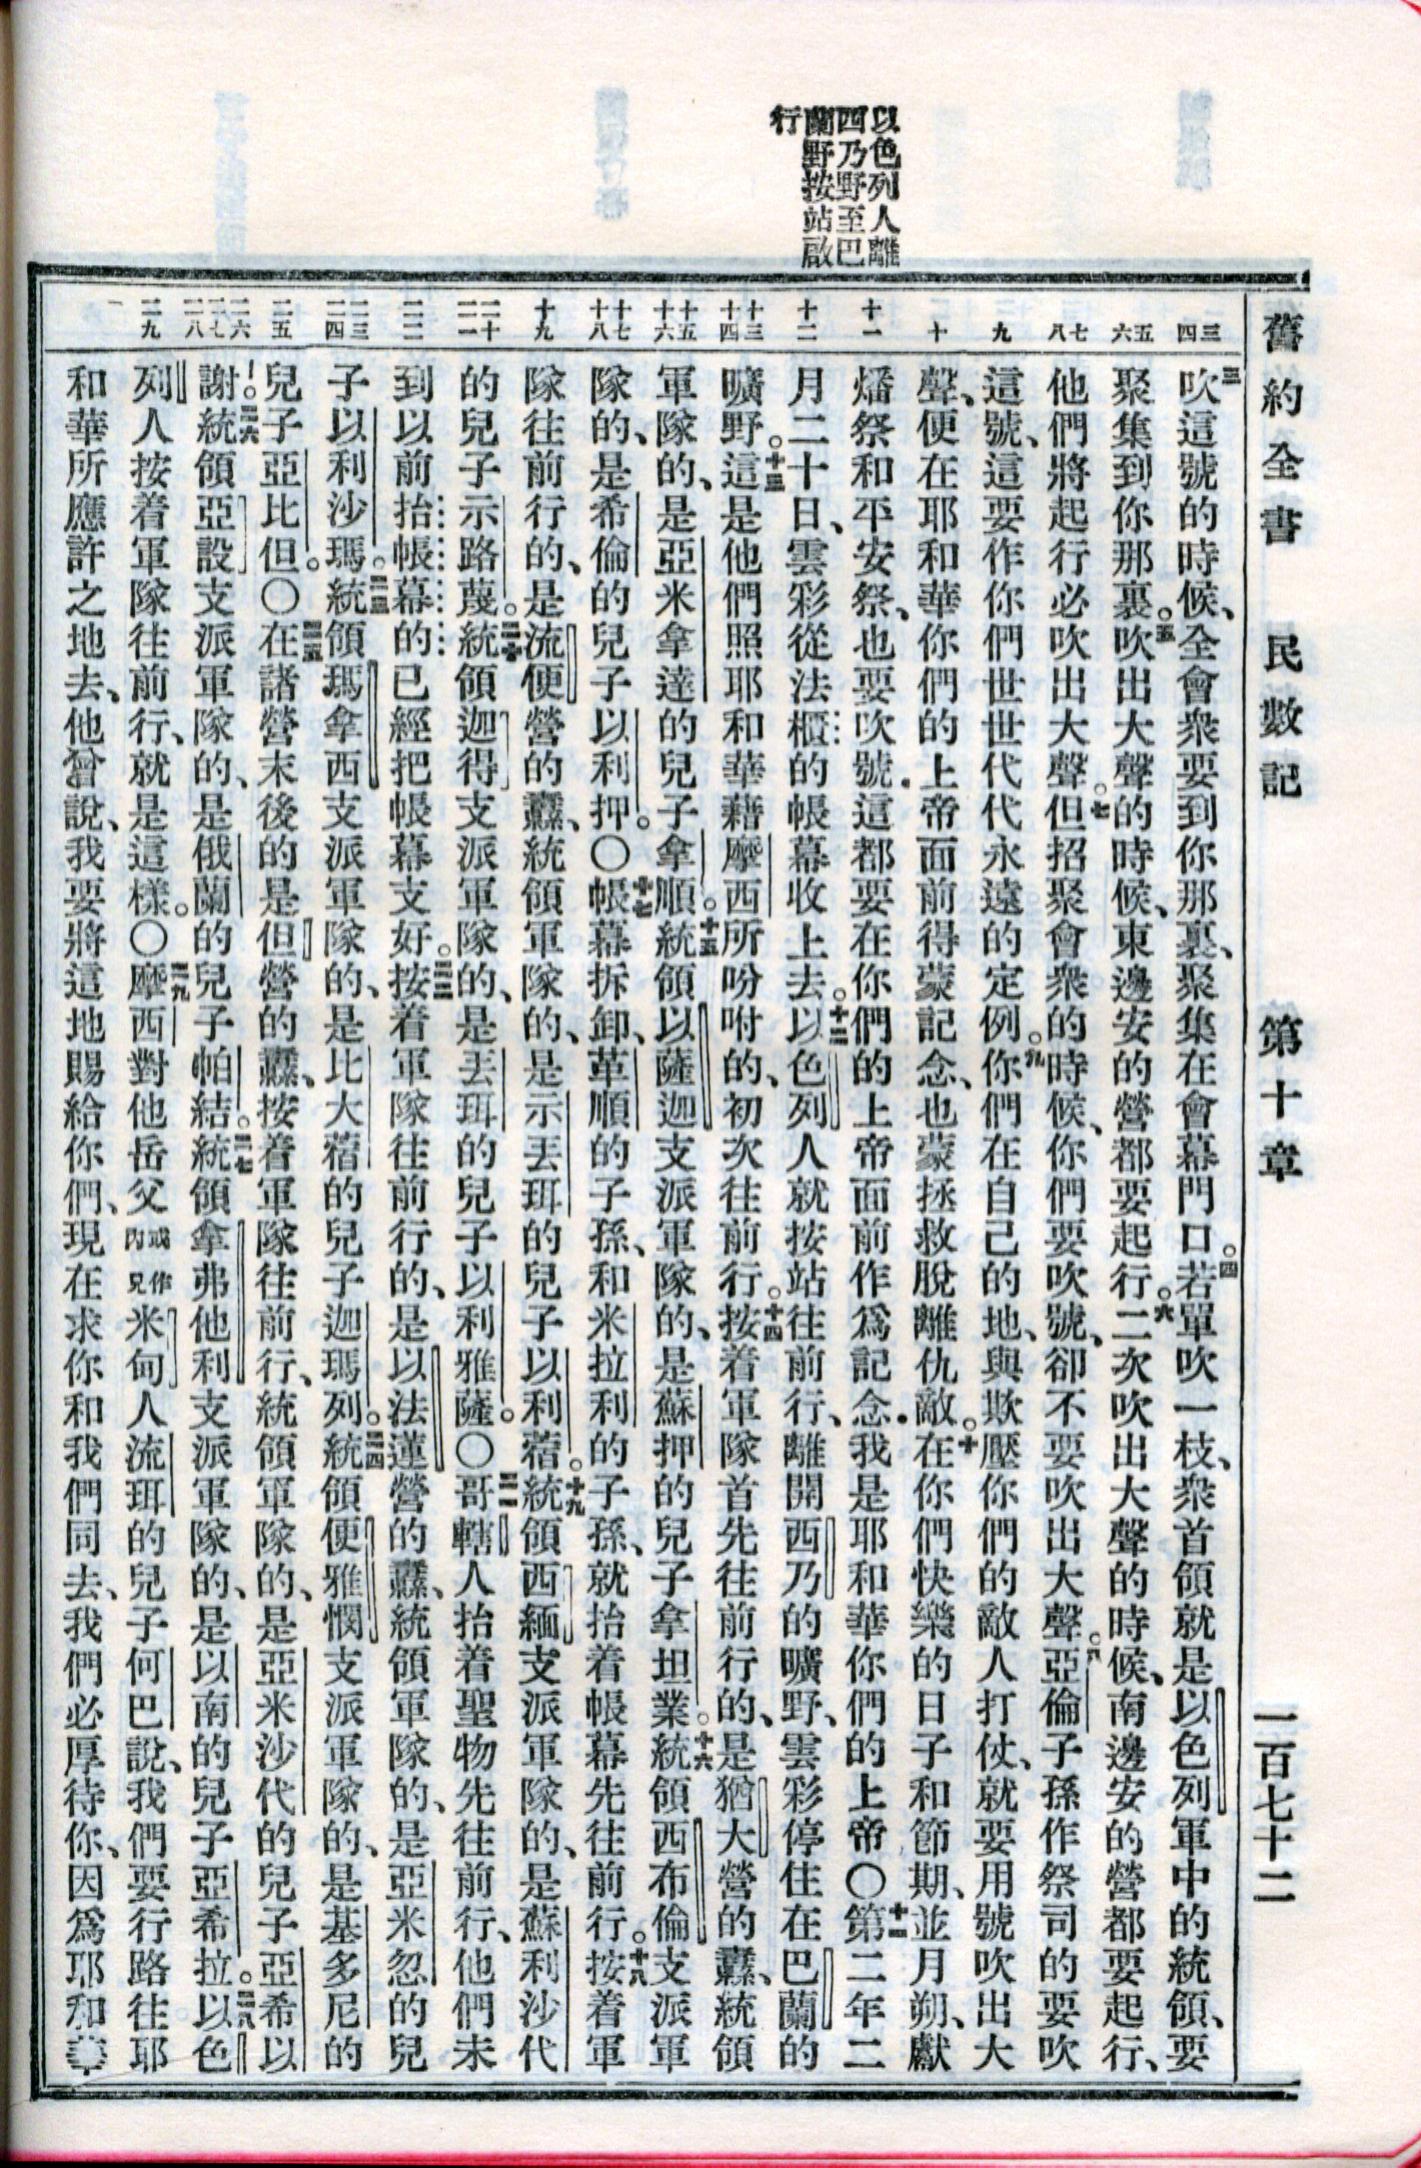 舊約全書 民數記 第十章 一百七十二
以色列人離
西乃野至巴
蘭野按站啟
行
三 四 五 六 七 八 九 十 十一 十二 十三 十四 十五 十六 十七 十八 十九 二十 二一 二二 二三 二四 二五 二六 二七 二八 二九
三吹這號的時候、全會衆要到你那裏、聚集在會幕門口。四若單吹一枝、衆首領就是以色列軍中的統領、要
聚集到你那裏。五吹出大聲的時候、東邊安的營都要起行。六二次吹出大聲的時候、南邊安的營都要起行、
他們將起行必吹出大聲。七但招聚會衆的時候、你們要吹號、卻不要吹出大聲。八亞倫子孫作祭司的要吹
這號、這要作你們世世代代永遠的定例。九你們在自己的地、與欺壓你們的敵人打仗、就要用號吹出大
聲、便在耶和華你們的上帝面前得蒙記念、也蒙拯救脫離仇敵。十在你們快樂的日子和節期、並月朔、獻
燔祭和平安祭、也要吹號．這都要在你們的上帝面前作爲記念．我是耶和華你們的上帝〇十一第二年二
月二十日、雲彩從法櫃的帳幕收上去。十二以色列人就按站往前行、離開西乃的曠野、雲彩停住在巴蘭的
曠野。十三這是他們照耶和華藉摩西所吩咐的、初次往前行。十四按着軍隊首先往前行的、是猶大營的纛、統領
軍隊的、是亞米拿達的兒子拿順。十五統領以薩迦支派軍隊的、是蘇押的兒子拿坦業。十六統領西布倫支派軍
隊的、是希倫的兒子以利押。〇十七帳幕拆卸、革順的子孫、和米拉利的子孫、就抬着帳幕先往前行。十八按着軍
隊往前行的、是流便營的纛、統領軍隊的、是示丟珥的兒子以利蓿。十九統領西緬支派軍隊的、是蘇利沙代
的兒子示路蔑。二十統領迦得支派軍隊的、是丟珥的兒子以利雅薩。〇二一哥轄人抬着聖物先往前行、他們未
到以前抬帳幕的已經把帳幕支好。二二按着軍隊往前行的、是以法蓮營的纛、統領軍隊的、是亞米忽的兒
子以利沙瑪。二三統領瑪拿西支派軍隊的、是比大蓿的兒子迦瑪列。二四統領便雅憫支派軍隊的、是基多尼的
兒子亞比但。〇二五在諸營末後的是但營的纛、按着軍隊往前行、統領軍隊的、是亞米沙代的兒子亞希以
謝。二六統領亞設支派軍隊的、是俄蘭的兒子帕結。二七統領拿弗他利支派軍隊的、是以南的兒子亞希拉。二八以色
列人按着軍隊往前行、就是這樣。〇二九摩西對他岳父或作內兄米甸人流珥的兒子何巴說、我們要行路往耶
和華所應許之地去、他曾說、我要將這地賜給你們、現在求你和我們同去、我們必厚待你、因爲耶和華